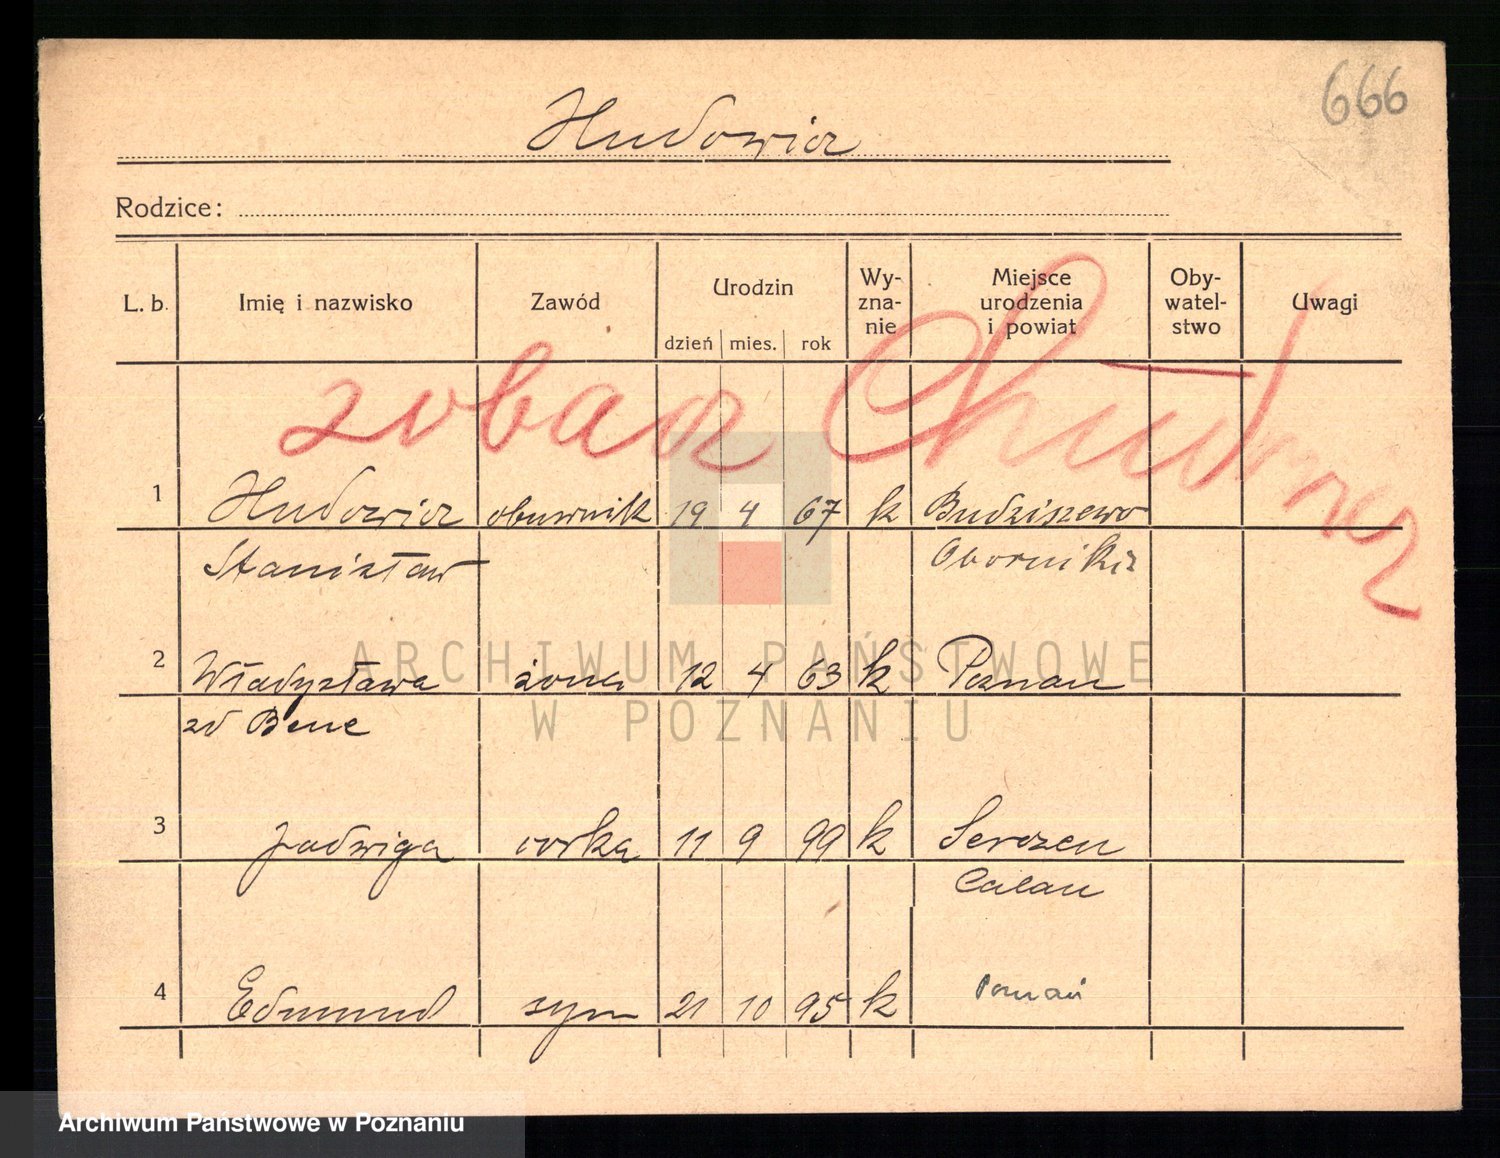 666
Hudowicz
Rodzice:
L. b. Imię i nazwisko Zawód Urodzin dzień mies. rok Wy-zna-nie Miejsce urodzenia i powiat Oby-watel-stwo Uwagi
zobacz
1 Hudowicz obuwnik 19 4 67 k Budziszewo
Stanisław Oborniki
2 Władysława żona 12 4 63 k Poznan
zd Bene
3 Jadwiga córka 11 9 99 k
Calau
4 Edmund syn 21 10 95 k Poznań
ARCHIWUM PAŃSTWOWE
W POZNANIU
Archiwum Państwowe w Poznaniu